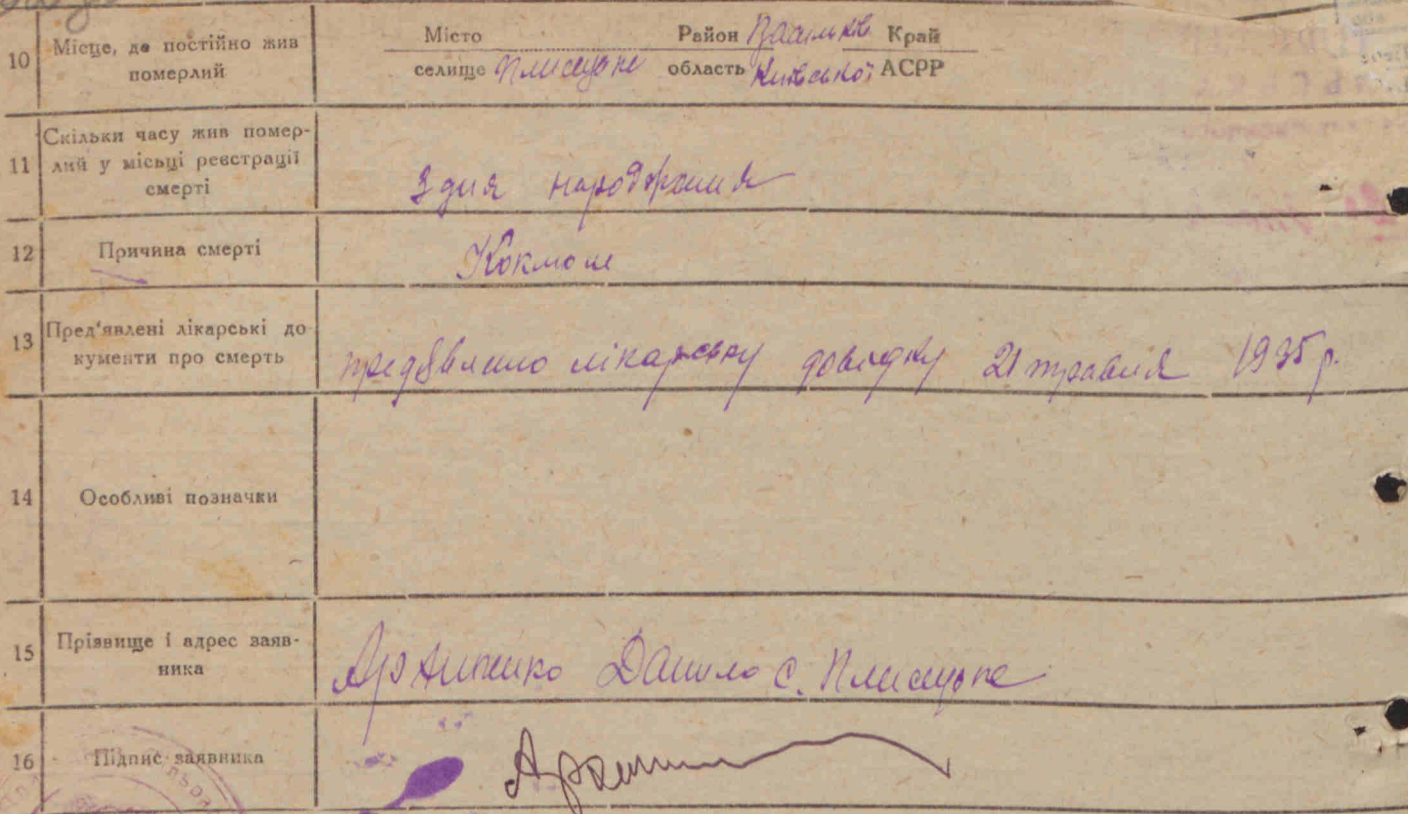 10 Місце, де постійно жив
померлий
Місто Район Васильків Край
селище Плисецьке область Київської АСРР
11 Скільки часу жив помер-
лий у місьці реєстрації
смерті
З дня народження
12 Причина смерті
Коклюш
13 Пред'явлені лікарські до
кументи про смерть
предявлено лікарську довідку 21 травня 1935 р.
14 Особливі позначки
15 Прізвище і адрес заяв-
ника
Архипенко Данило с. Плисецьке
16 Підпис заявника